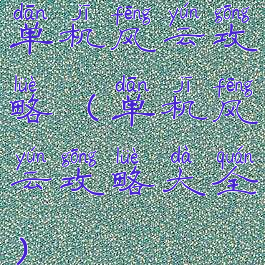 dān jī fēng yún gōng
单机风云攻
lüè dān jī fēng
略（单机风
yún gōng lüè dà quán
云攻略大全
）